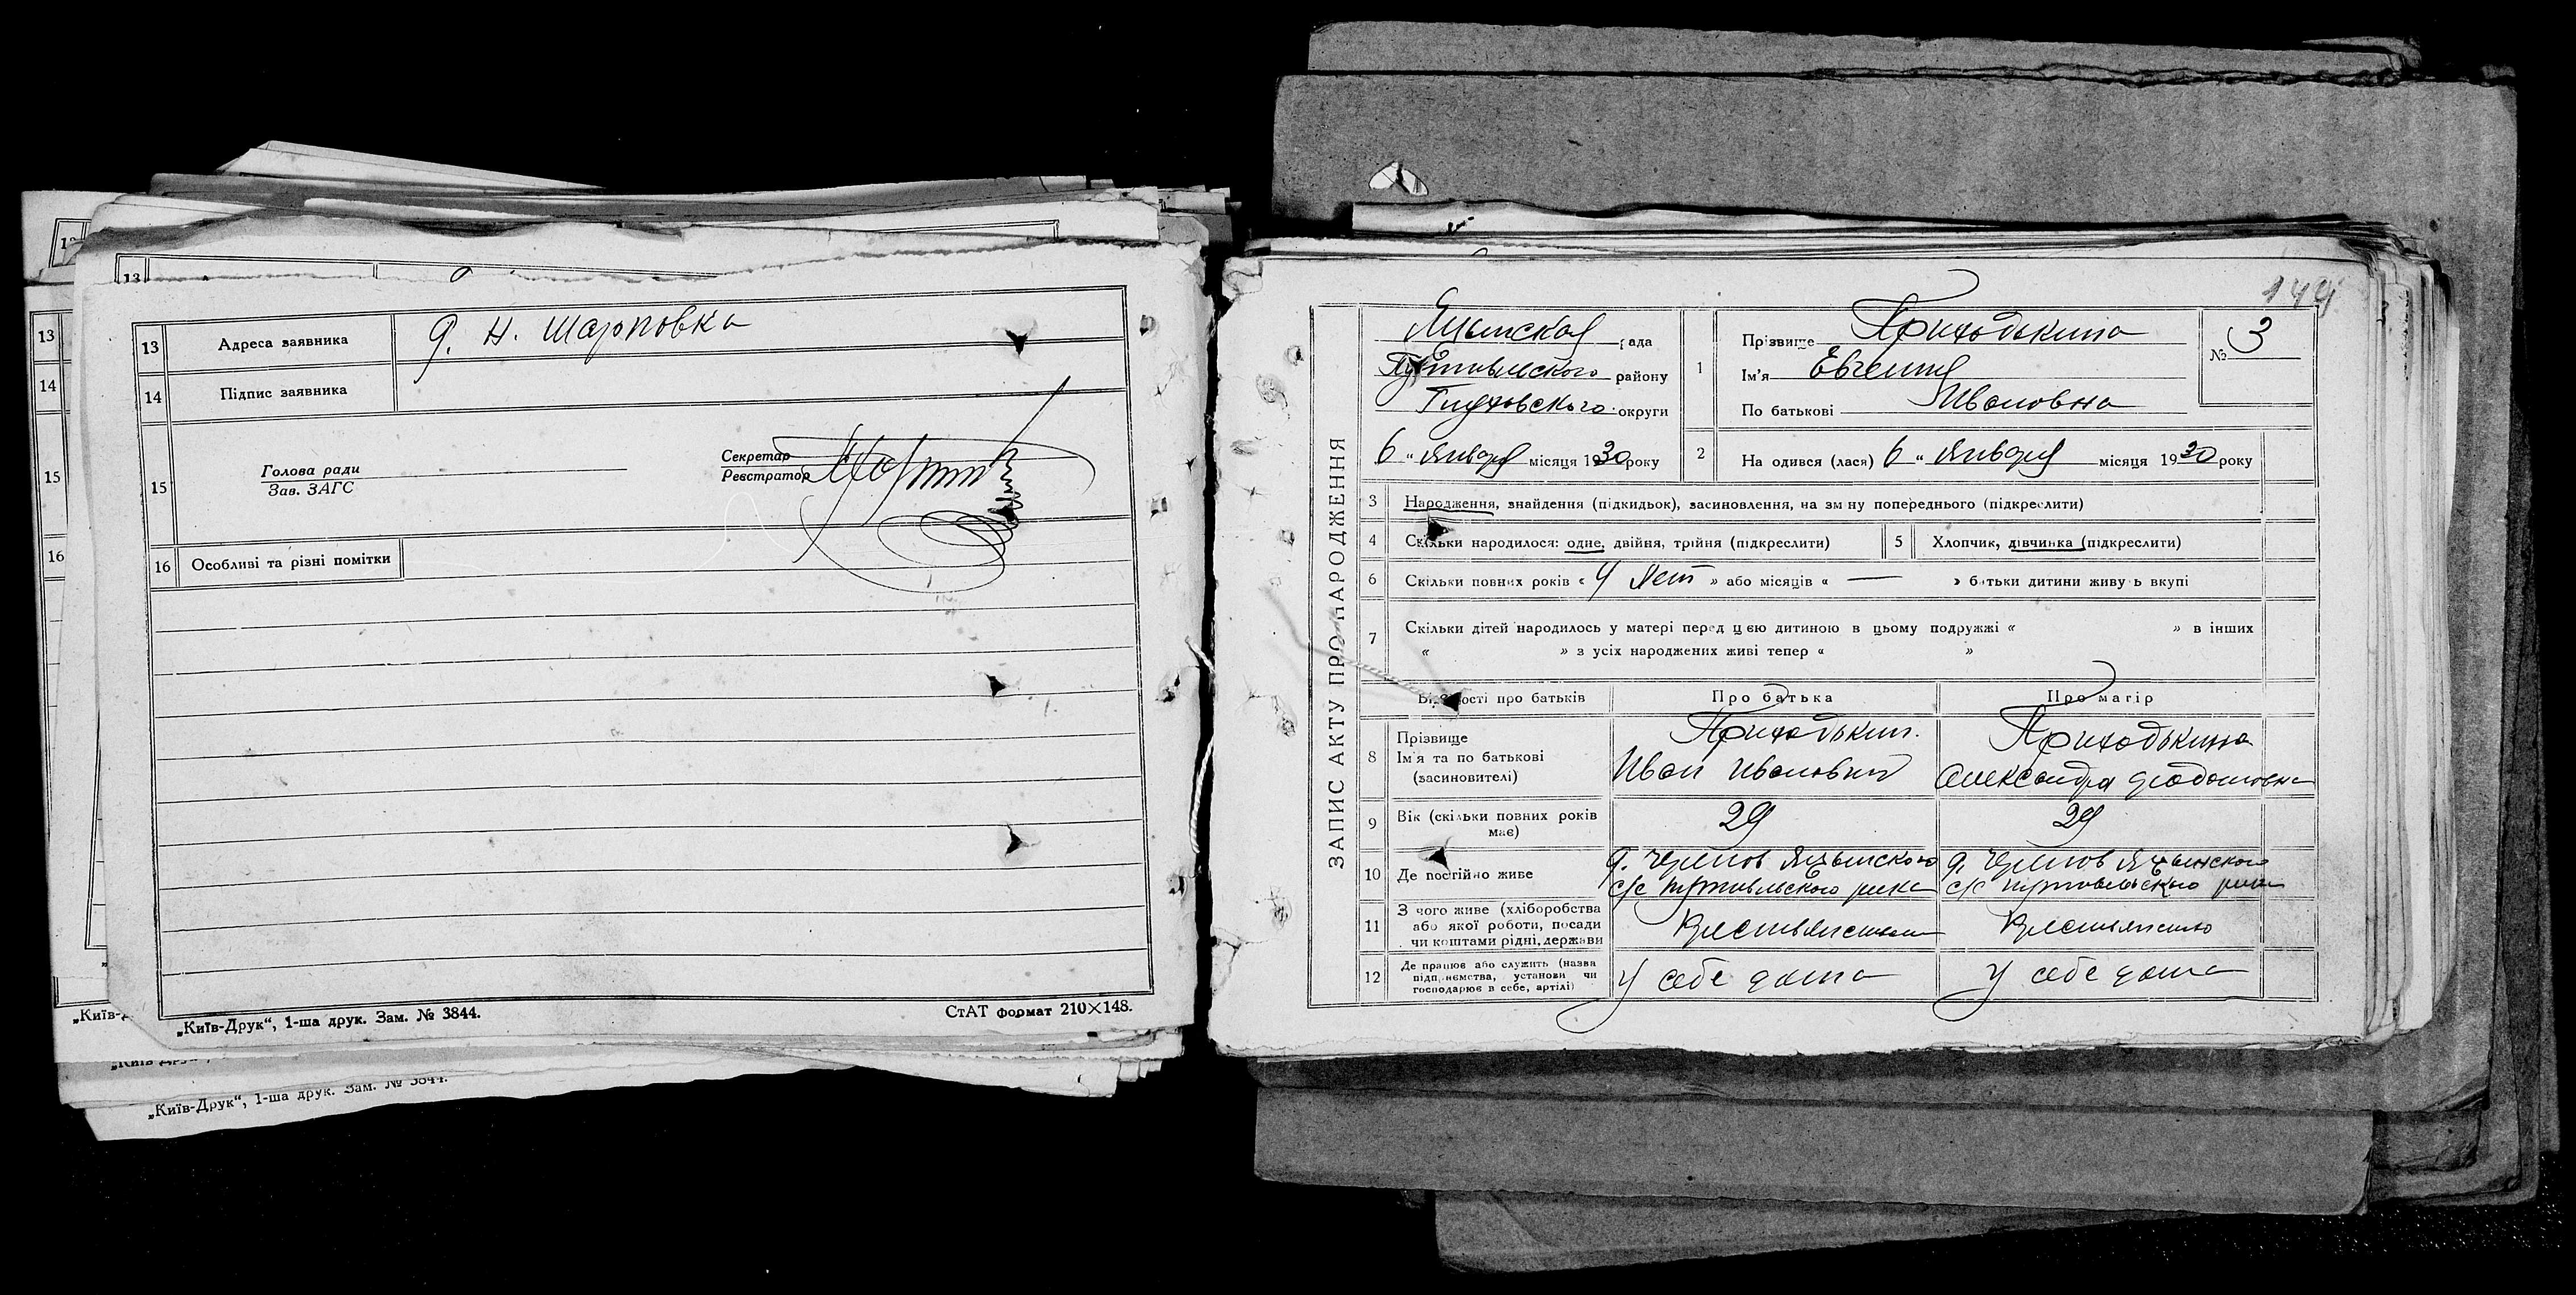 13 Адреса заявника д. Н. Шарповка
14 Підпис заявника
15 Голова ради
Зав. ЗАГС
Секретар
Реєстратор
16 Особливі та різні помітки
„Київ-Друк“, 1-ша друк. Зам. № 3844.
СтАТ формат 210×148.
„Київ-Друк“, 1-ша друк. Зам. № 3844.
13
14
15
16
ЗАПИС АКТУ ПРО НАРОДЖЕННЯ
149
Яцынская рада
Путивльского району
Глуховского округи
6 „ Января місяця 1930 року
1 Прізвище Приходькина
Ім'я Евгения
По батькові Ивановна
№ 3
2 На одився (лася) 6 „ Января місяця 1930 року
3 Народження, знайдення (підкидьок), засиновлення, на зм ну попереднього (підкреслити)
4 Скільки народилося: одне, двійня, трійня (підкреслити)
5 Хлопчик, дівчинка (підкреслити)
6 Скільки повних років « 4 лет » або місяців « — » батьки дитини живу ь вкупі
7 Скільки дітей народилось у матері перед цією дитиною в цьому подружжі « » в інших
« » з усіх народжених живі тепер « »
Відомості про батьків Про батька Про матір
8 Прізвище
Ім'я та по батькові
(засновителі)
Приходькин.
Иван Иванович
Приходькина
Александра
9 Вік (скільки повних років
має)
29
29
10 Де постійно живе
д. Яцынского
с/с Путивльского рика
д. Яцынского
с/с Путивльского рика
11 З чого живе (хліборобства
або якої роботи, посади
чи коштами рідні, держави
Крестьянством
Крестьянство
12 Де працює або служить (назва
підприємства, установи чи
господарює в себе, артілі)
У себе дома
У себе дома